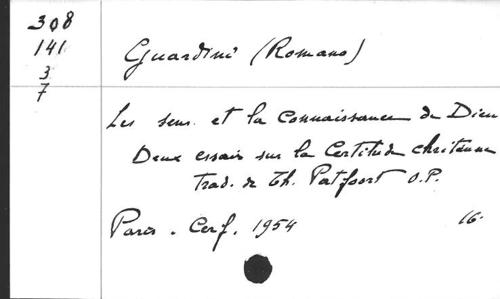 308
141
3
7
Guardini (Romano)
Les sens et la Connaissance de Dieu
Deux essais sur la Certitude chrétienne
Trad. de Th. Patfoort O.P.
Paris. Cerf. 1954 16.